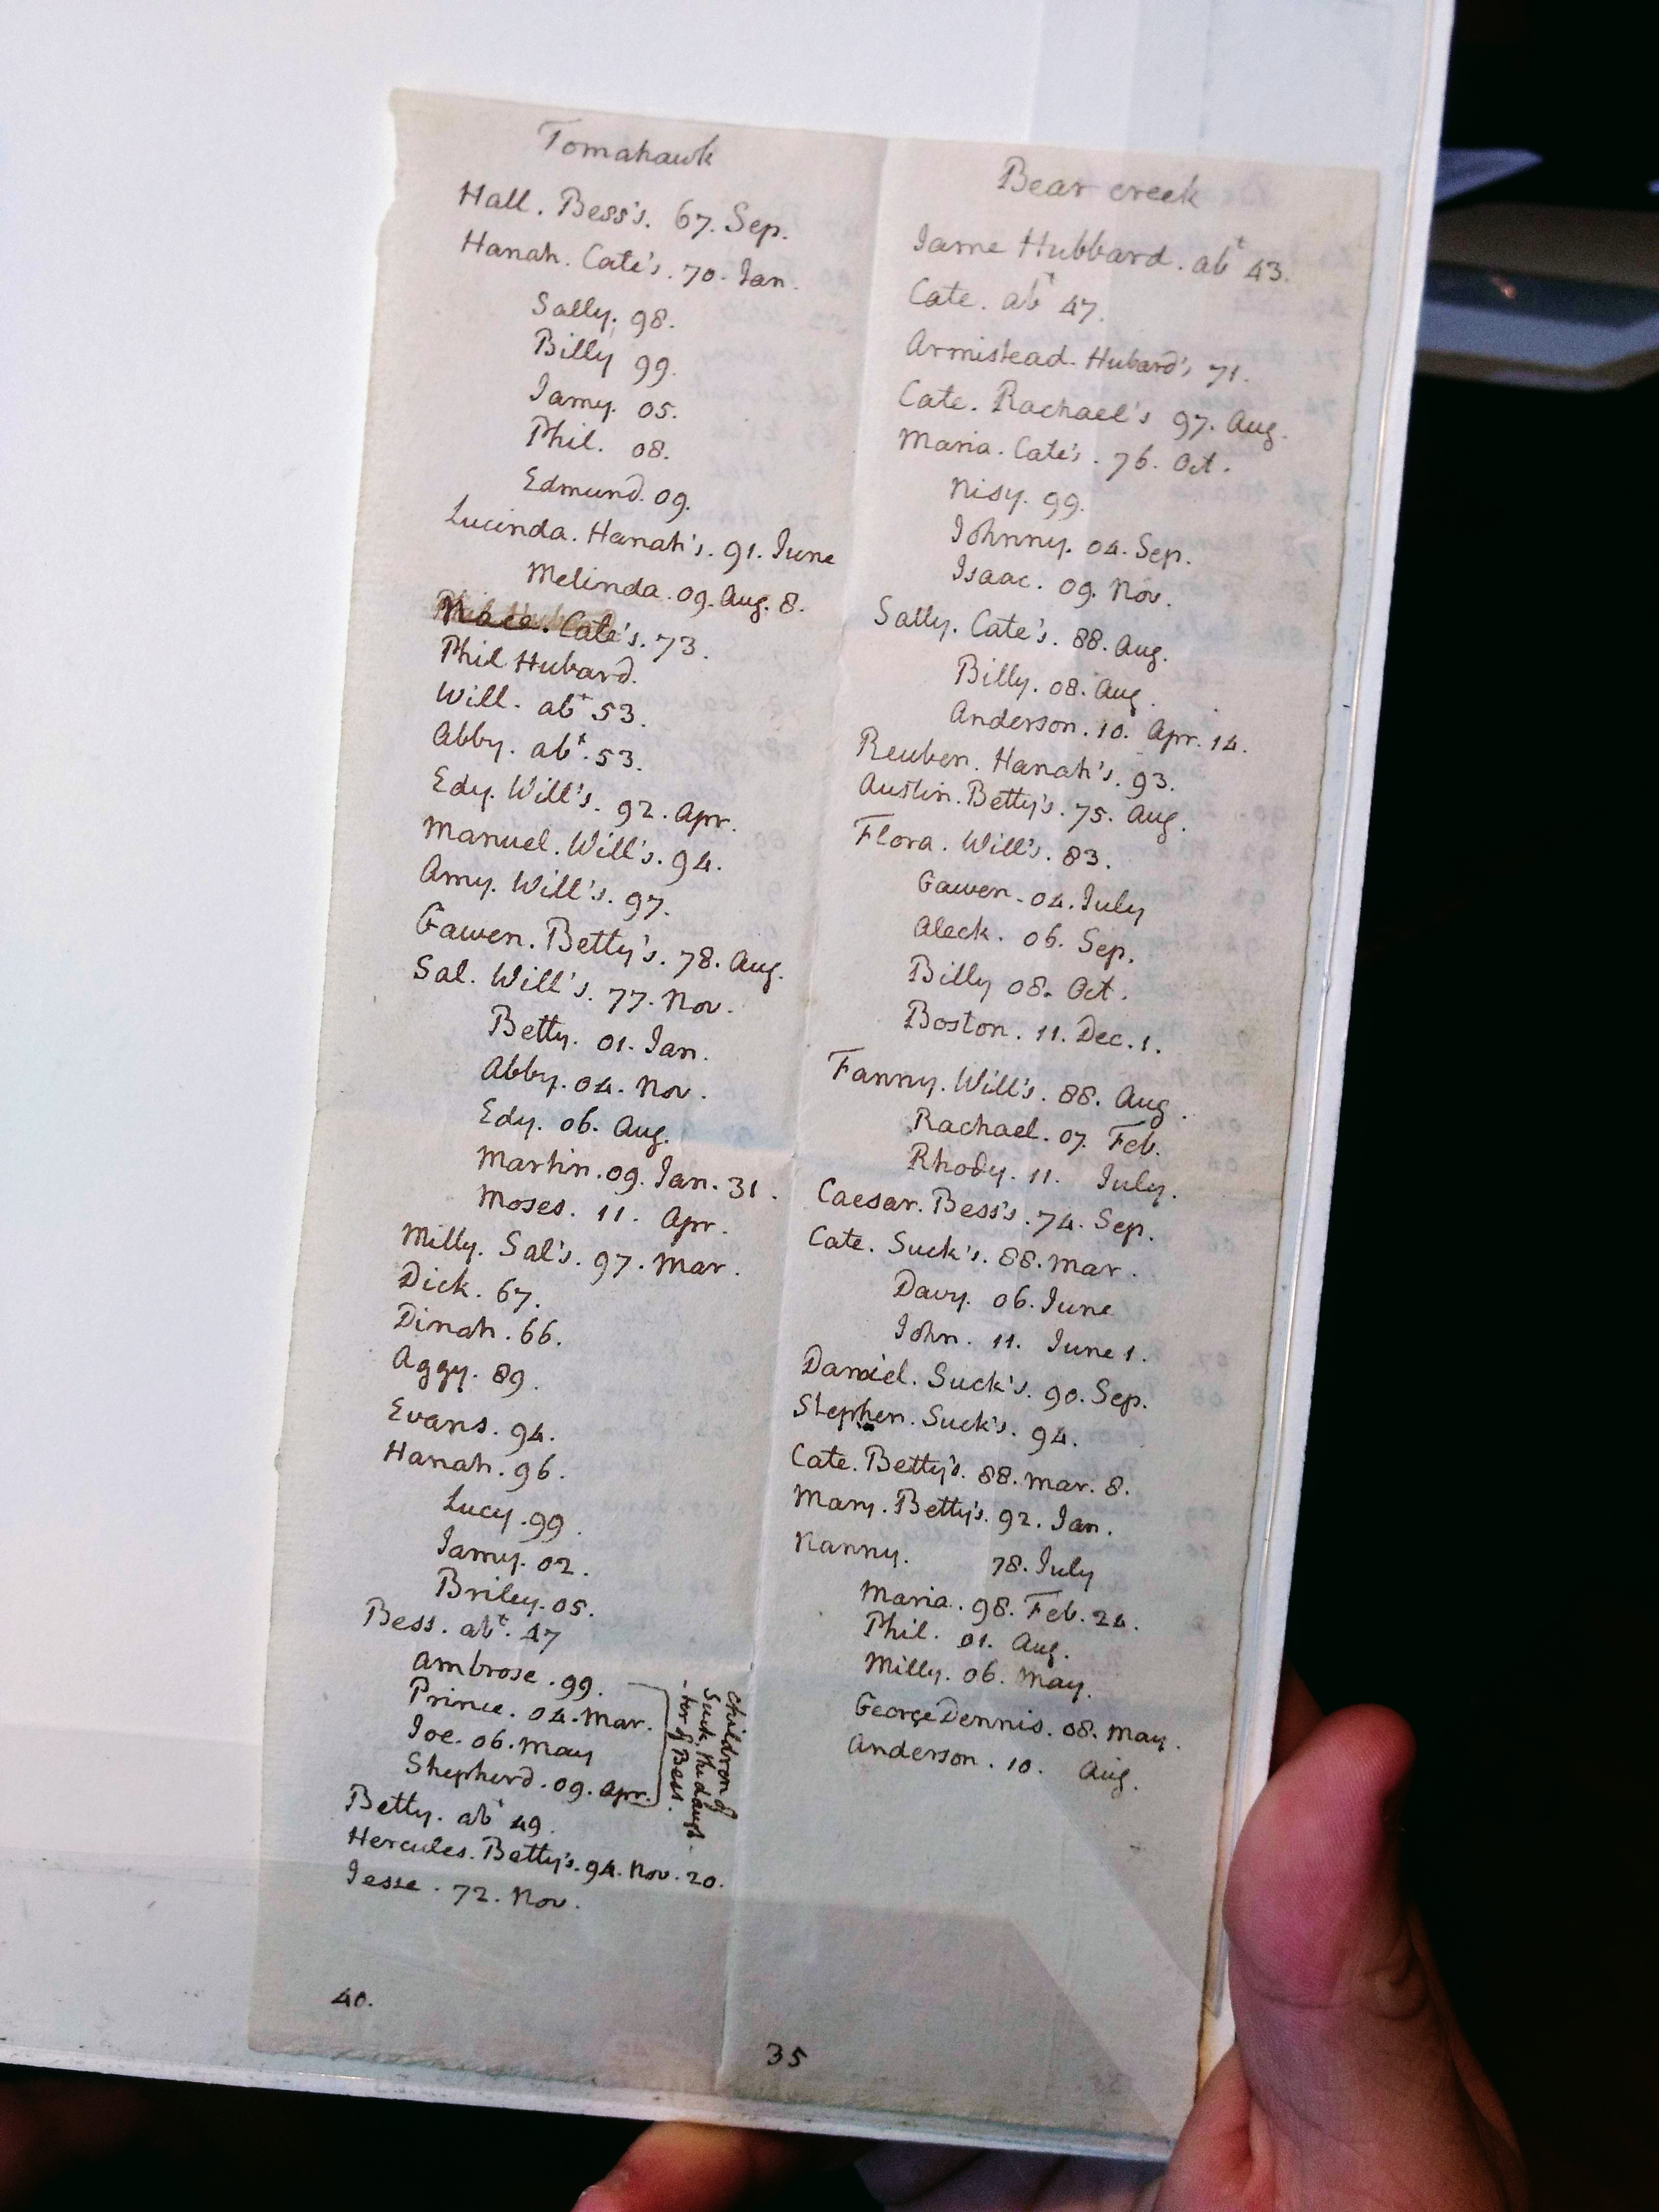 Tomahawk
Hall. Bess's. 67. Sep.
Hanah. Cate's. 70. Jan.
Sally. 98.
Billy 99.
Jamy. 05.
Phil. 08.
Edmund. 09.
Lucinda. Hanah's. 91. June
Melinda. 09. Aug. 8.
Nace. Cate's. 73.
Phil Hubard.
Will. abt 53.
Abby. abt. 53.
Edy. Will's. 92. Apr.
Manuel. Will's. 94.
Amy. Will's. 97.
Gawen. Betty's. 78. Aug.
Sal. Will's. 77. Nov.
Betty. 01. Jan.
Abby. 04. Nov.
Edy. 06. Aug.
Martin. 09. Jan. 31.
Moses. 11. Apr.
Milly. Sal's. 97. Mar.
Dick. 67.
Dinah. 66.
Aggy. 89.
Evans. 94.
Hanah. 96.
Lucy. 99.
Jamy. 02.
Briley. 05.
Bess. abt. 47
Ambrose. 99.
Prince. 04. Mar.
Joe. 06. May
Shepherd. 09. Apr.
children of
Suck, the daugh
-ter of Bess.
Betty. abt 49.
Hercules. Betty's. 94. Nov. 20.
Jesse. 72. Nov.
40.
Bear creek
Jame Hubbard. abt 43.
Cate. abt 47.
Armistead. Hubard's 71.
Cate. Rachael's 97. Aug.
Maria. Cate's. 76. Oct.
Nisy. 99.
Johnny. 04. Sep.
Isaac. 09. Nov.
Sally. Cate's. 88. Aug.
Billy. 08. Aug.
Anderson. 10. Apr. 14.
Reuben. Hanah's. 93.
Austin. Betty's. 75. Aug.
Flora. Will's. 83.
Gawen. 04. July
Aleck. 06. Sep.
Billy 08. Oct.
Boston. 11. Dec. 1.
Fanny. Will's. 88. Aug.
Rachael. 07. Feb.
Rhody. 11. July.
Caesar. Bess's. 74. Sep.
Cate. Suck's. 88. Mar.
Davy. 06. June
John. 11. June 1.
Daniel. Suck's. 90. Sep.
Stephen. Suck's. 94.
Cate. Betty's. 88. Mar. 8.
Mary. Betty's. 92. Jan.
Nanny. 78. July
Maria. 98. Feb. 24.
Phil. 01. Aug.
Milly. 06. May.
George Dennis. 08. May.
Anderson. 10. Aug.
35